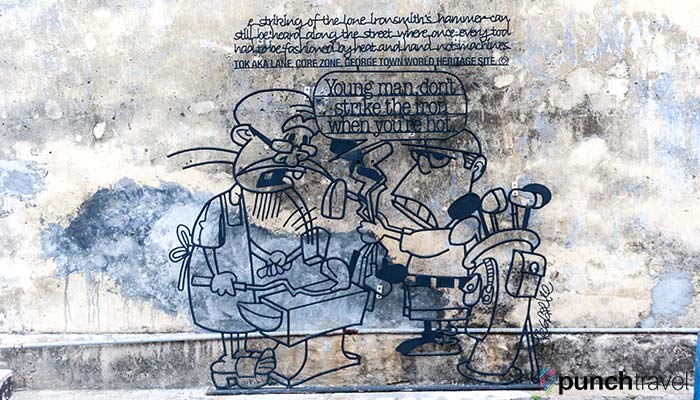 e striking of the lone Ironsmith's hammer can
still be heard along the street where once every tool
had to be fashioned by heat and hand not machines.
TOK AKA LANE, CORE ZONE, GEORGE TOWN WORLD HERITAGE SITE. ©
Young man, don't
strike the iron
when you're hot.
punchtravel